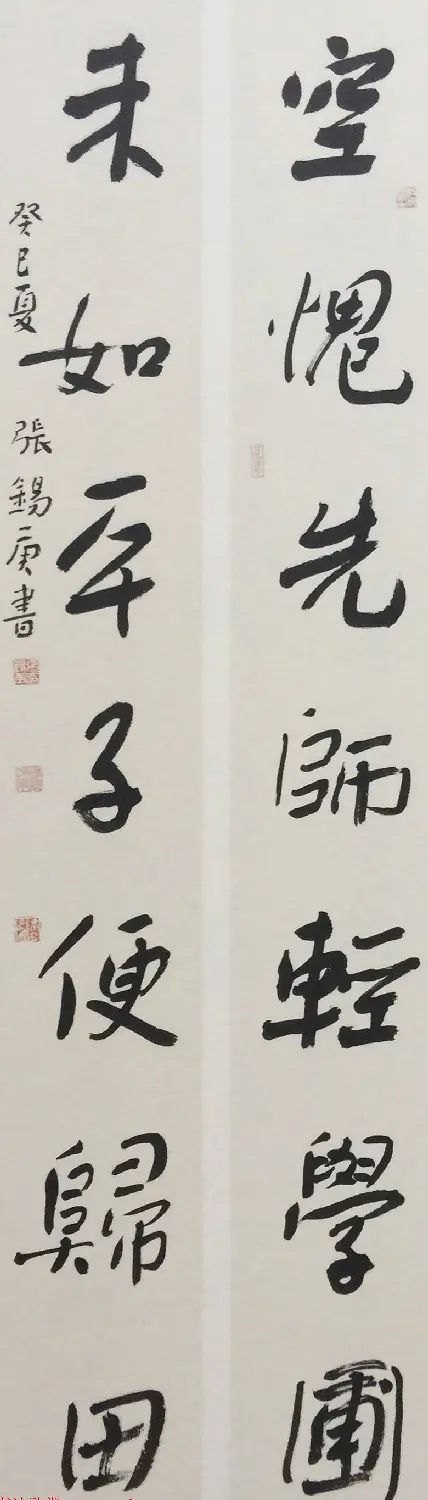 空愧先師輕學圃
未如平子便歸田
癸巳夏
張錫庚書